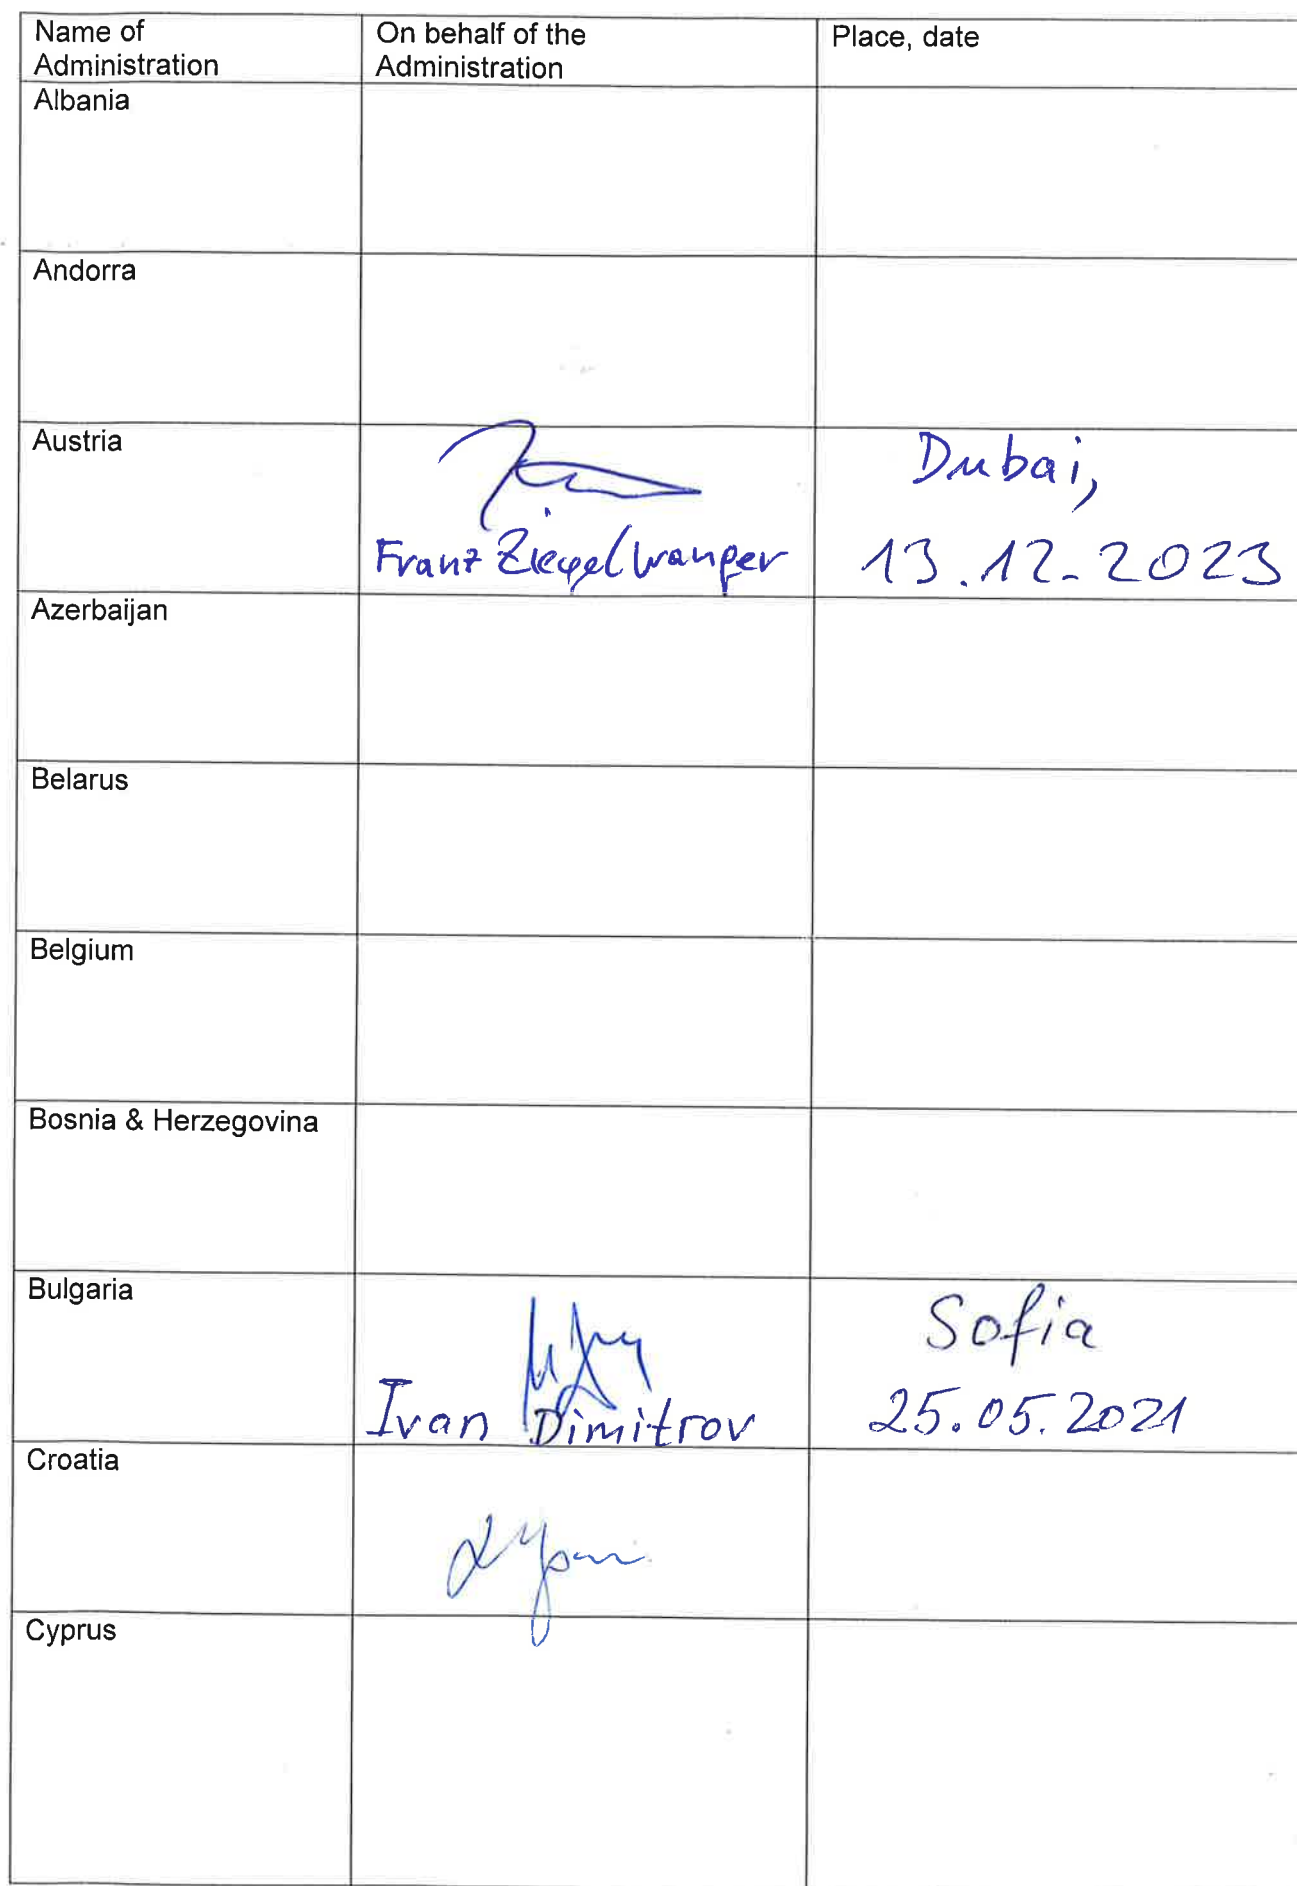 Name of
Administration
On behalf of the
Administration
Place, date
Albania
Andorra
Austria
Franz Ziegelwanger
Dubai,
13.12.2023
Azerbaijan
Belarus
Belgium
Bosnia & Herzegovina
Bulgaria
Ivan Dimitrov
Sofia
25.05.2021
Croatia
Cyprus